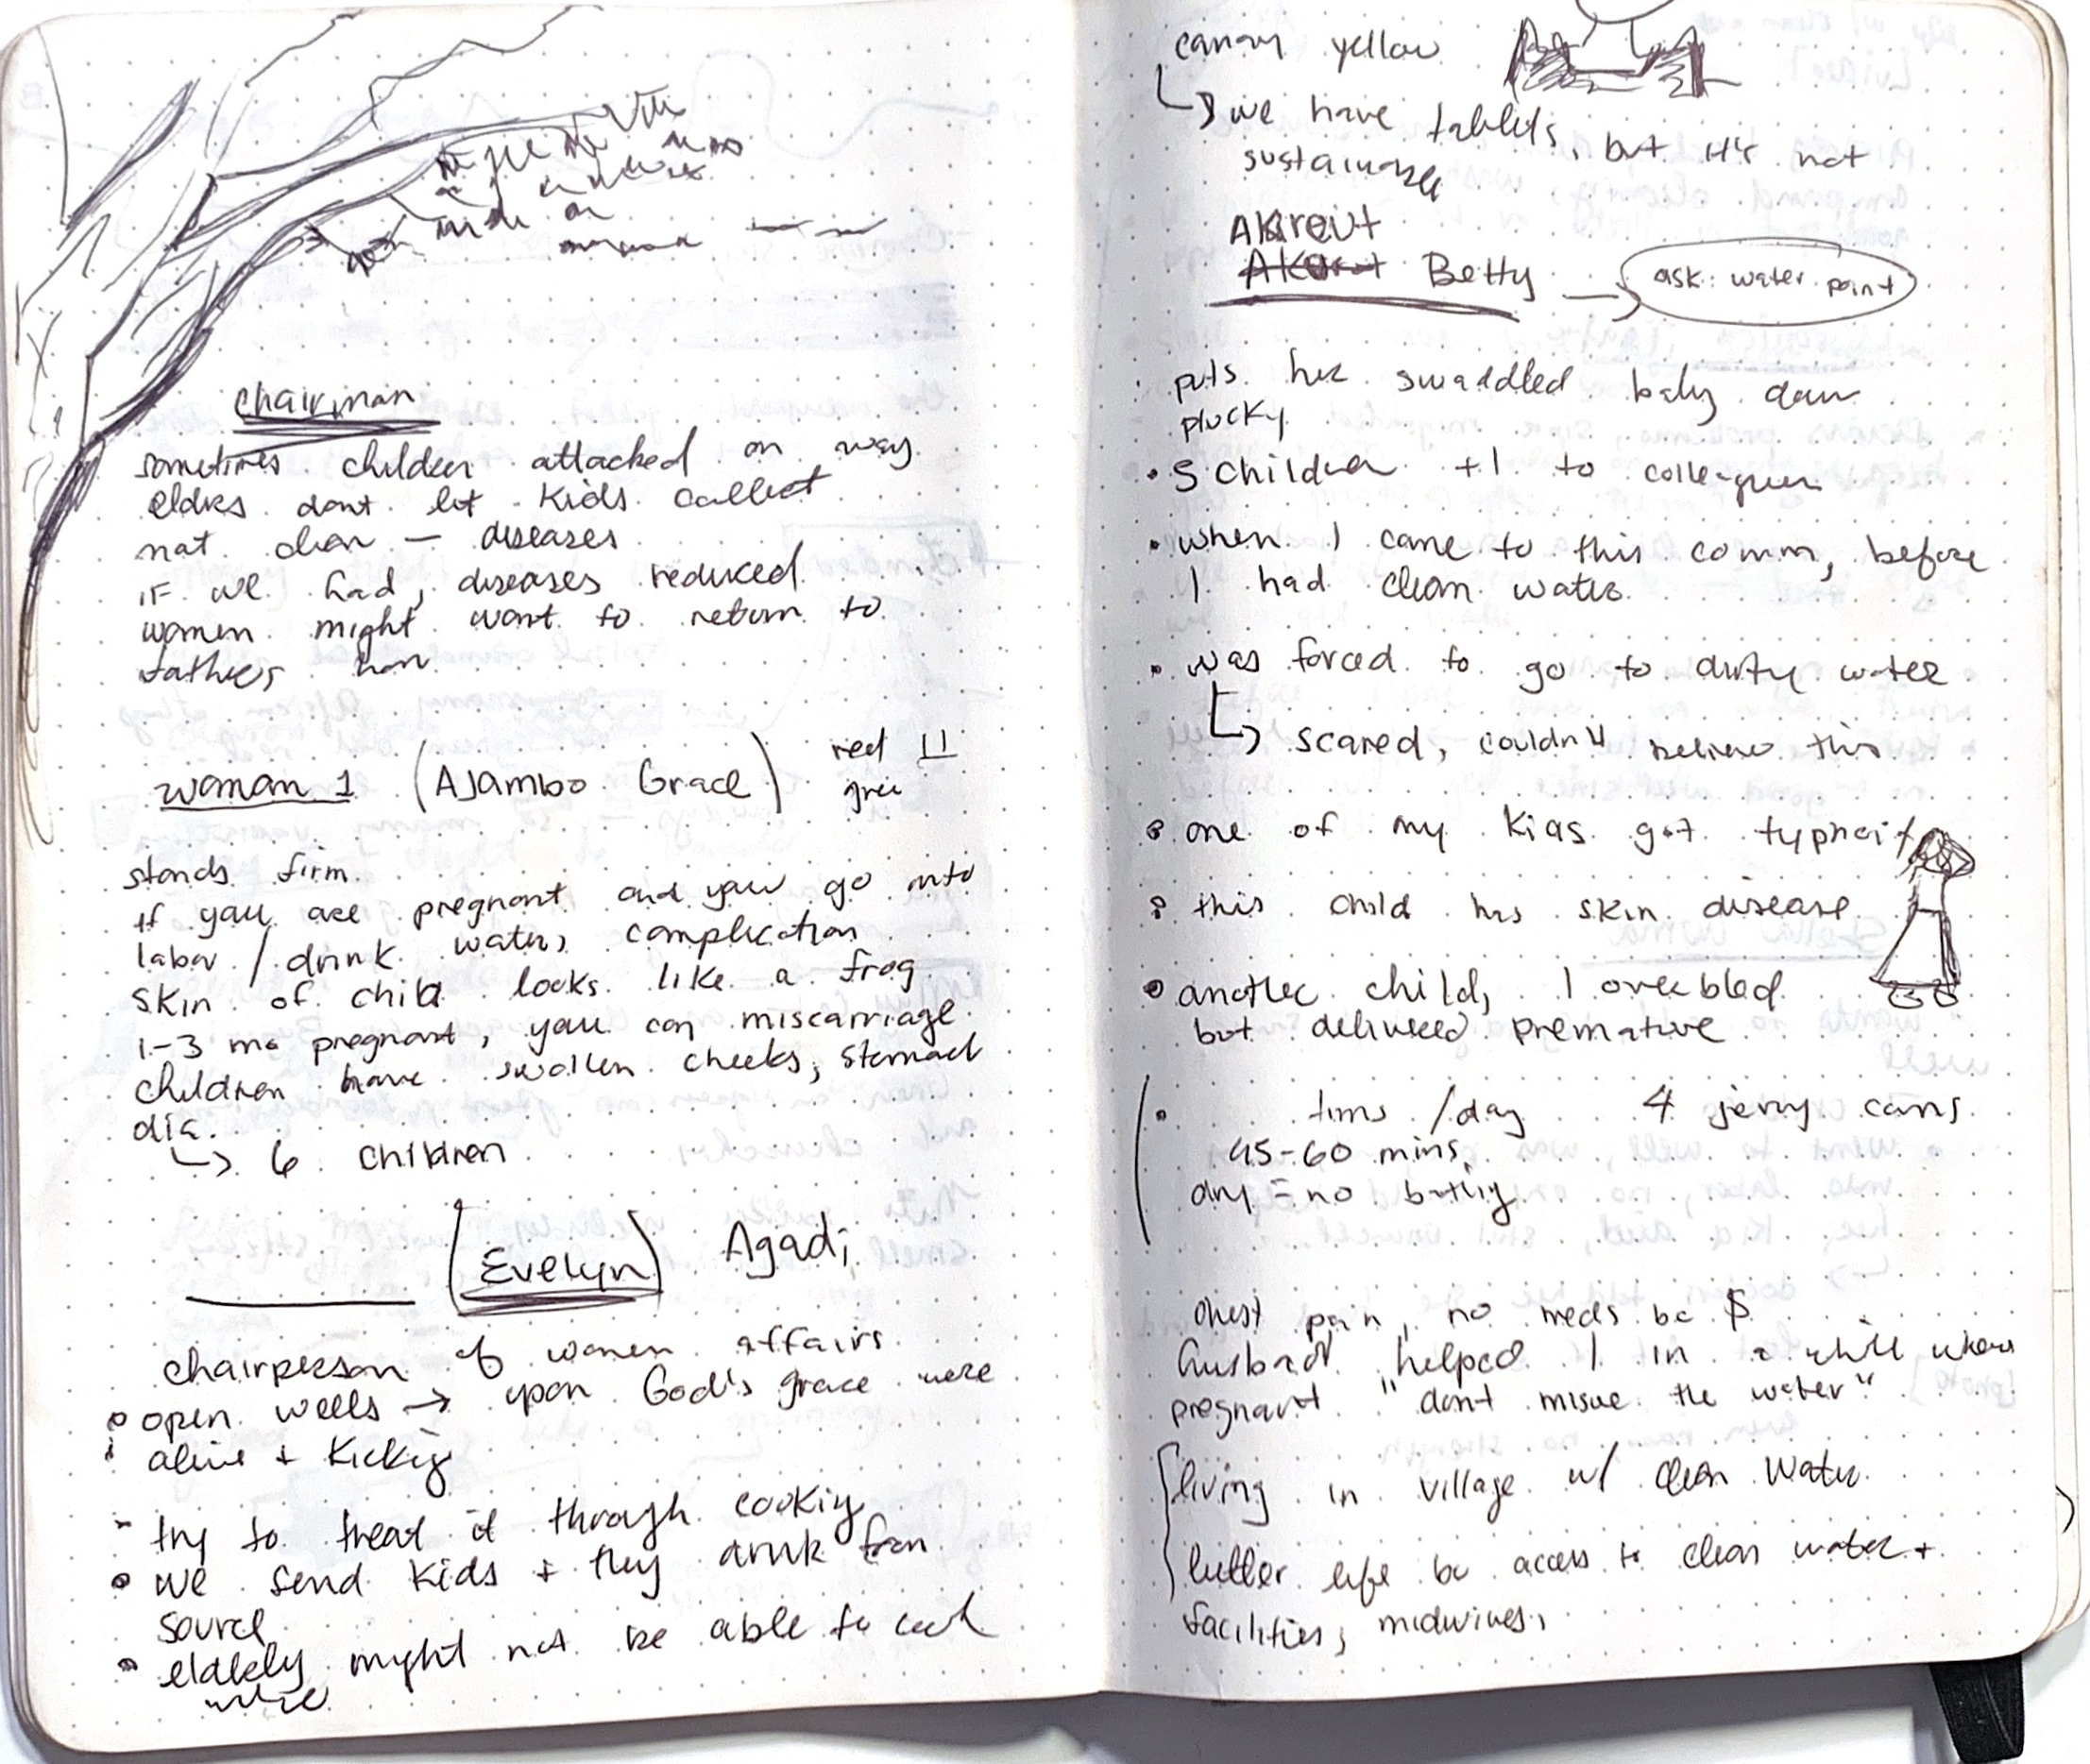 chairman
sometimes children attacked on way
elders dont let kids collect
not clean — diseases
if we had, diseases reduced
women might want to return to
fathers
woman 1 (Ajambo Grace) red
stands firm
if you are pregnant and you go into
labor / drink water, complication
skin of child looks like a frog
1-3 mo pregnant, you can miscarriage
children have swollen cheeks, stomach
dia.
↳ 6 children
(Evelyn) Agadi
chairperson of women affairs
open wells → upon God's grace were
alive + kicking
- try to treat it through cooking
• we send kids + they drink from
source
• elderly might not be able to cook
canary yellow
↳ we have tablets, but it's not
sustainable
AKireut
Betty → ask: water point
puts her swaddled baby down
plucky
• 5 children +1 to
• when I came to this comm, before
I had clean water
• was forced to go to dirty water
↳ scared, couldn't believe this
• one of my kids got
• this child has skin disease
• another child, I overbled
but delivered premature
• times / day 4 jerry cans
45-60 mins
dry = no bathing
chest pain, no meds bc $
husband helped 1 in a while when
pregnant "dont misue the water"
living in village w/ clean water
better life bc access to clean water +
facilities, midwives,